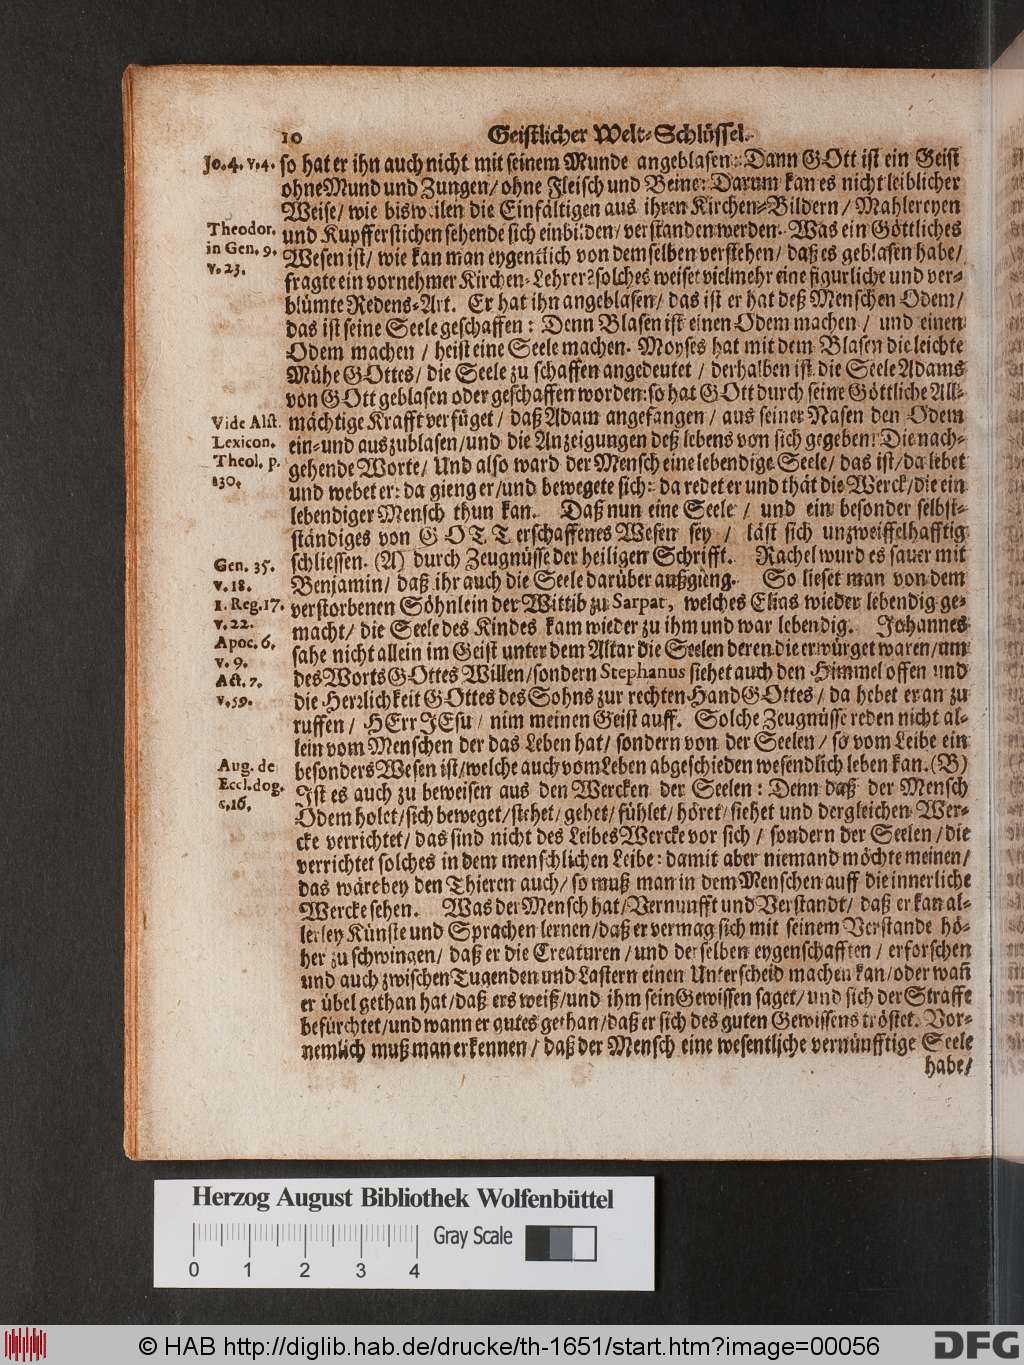 10
Geistlicher Welt-Schlössel.
Jo. 4. v. 4.
so hat er ihn auch nicht mit seinem Munde angeblasen: Dann GOtt ist ein Geist
ohne Mund und Zungen/ ohne Fleisch und Beine: Darum kan es nicht leiblicher
Weise/ wie bisweilen die Einfältigen aus ihren Kirchen-Bildern/ Mahlereyen
Theodor.
in Gen. 9.
v. 23.
und Kupfferstichen sehende sich einbilden/ verstanden werden. Was ein Göttliches
Wesen ist/ wie kan man eygentlich von demselben verstehen/ daß es geblasen habe/
fragte ein vornehmer Kirchen-Lehrer? solches weiset vielmehr eine figurliche und ver-
blümte Redens-Art. Er hat ihn angeblasen/ das ist er hat deß Menschen Odem/
das ist seine Seele geschaffen: Denn Blasen ist einen Odem machen/ und einen
Odem machen/ heist eine Seele machen. Moyses hat mit dem Blasen die leichte
Mühe GOttes/ die Seele zu schaffen angedeutet/ derhalben ist die Seele Adams
von GOtt geblasen oder geschaffen worden: so hat GOtt durch seine Göttliche All-
Vide Alst.
Lexicon.
Theol. p.
130.
mächtige Krafft verfüget/ daß Adam angefangen/ aus seiner Nasen den Odem
ein- und auszublasen/ und die Anzeigungen deß lebens von sich gegeben: Die nach-
gehende Worte/ Und also ward der Mensch eine lebendige Seele/ das ist/ da lebet
und webet er: da gieng er/ und bewegete sich: da redet er und thät die Werck/ die ein
lebendiger Mensch thun kan. Daß nun eine Seele/ und ein besonder selbst-
ständiges von GOTT erschaffenes Wesen sey/ läst sich unzweiffelhafftig
schliessen. (A) durch Zeugnüsse der heiligen Schrifft. Rachel wurd es sauer mit
Gen. 35.
v. 18.
1. Reg. 17.
v. 22.
Apoc. 6.
v. 9.
Act. 7.
v. 59.
Benjamin/ daß ihr auch die Seele darüber außgieng. So lieset man von dem
verstorbenen Söhnlein der Wittib zu Sarpat, welches Elias wieder lebendig ge-
macht/ die Seele des Kindes kam wieder zu ihm und war lebendig. Johannes
sahe nicht allein im Geist unter dem Altar die Seelen deren die erwürget waren/ um
des Worts GOttes Willen/ sondern Stephanus siehet auch den Himmel offen und
die Herrlichkeit GOttes des Sohns zur rechten Hand GOttes/ da hebet er an zu
ruffen/ HErr JEsu/ nim meinen Geist auff. Solche Zeugnüsse reden nicht al-
lein vom Menschen der das Leben hat/ sondern von der Seelen/ so vom Leibe ein
Aug. de
Eccl. dog.
c. 16.
besonders Wesen ist/ welche auch vom Leben abgeschieden wesendlich leben kan. (B)
Ist es auch zu beweisen aus den Wercken der Seelen: Denn daß der Mensch
Odem holet/ sich beweget/ stehet/ gehet/ fühlet/ höret/ siehet und dergleichen Wer-
cke verrichtet/ das sind nicht des Leibes Wercke vor sich/ sondern der Seelen/ die
verrichtet solches in dem menschlichen Leibe: damit aber niemand möchte meinen/
das wäre bey den Thieren auch/ so muß man in dem Menschen auff die innerliche
Wercke sehen. Was der Mensch hat/ Vernunfft und Verstandt/ daß er kan al-
lerley Künste und Sprachen lernen/ daß er vermag sich mit seinem Verstande hö-
her zu schwingen/ daß er die Creaturen/ und derselben eygenschafften/ erforschen
und auch zwischen Tugenden und Lastern einen Unterscheid machen kan/ oder wañ
er übel gethan hat/ daß ers weiß/ und ihm sein Gewissen saget/ und sich der Straffe
befürchtet/ und wann er gutes gethan/ daß er sich des guten Gewissens tröstet. Vor-
nemlich muß man erkennen/ daß der Mensch eine wesentliche vernünfftige Seele
habe/
Herzog August Bibliothek Wolfenbüttel
Gray Scale
0 1 2 3 4
© HAB http://diglib.hab.de/drucke/th-1651/start.htm?image=00056
DFG